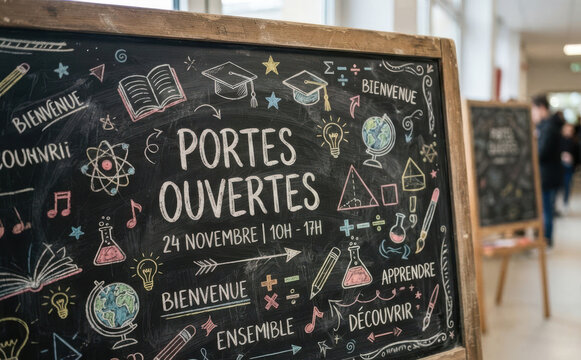 BIENVENUE
BIENVENUE
PORTES
OUVERTES
24 NOVEMBRE | 10H - 17H
BIENVENUE
APPRENDRE
ENSEMBLE
DÉCOUVRIR
PORTES